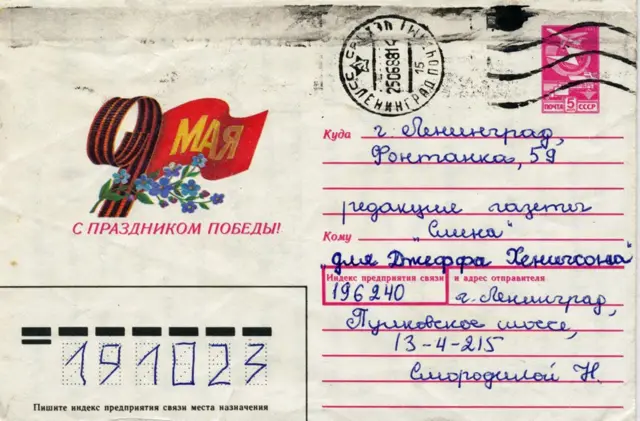 СССР ЛЕНИНГРАД ПОЧТАМТ
25068814
15
ПОЧТА 5 СССР
9 МАЯ
С ПРАЗДНИКОМ ПОБЕДЫ!
Куда г. Ленинград,
Фонтанка, 59
редакция газеты
Кому "Смена"
"для Джеффа Хенигсона"
Индекс предприятия связи и адрес отправителя
196240 г. Ленинград,
Пулковское шоссе,
13-4-215
Смородиной Н.
191023
Пишите индекс предприятия связи места назначения